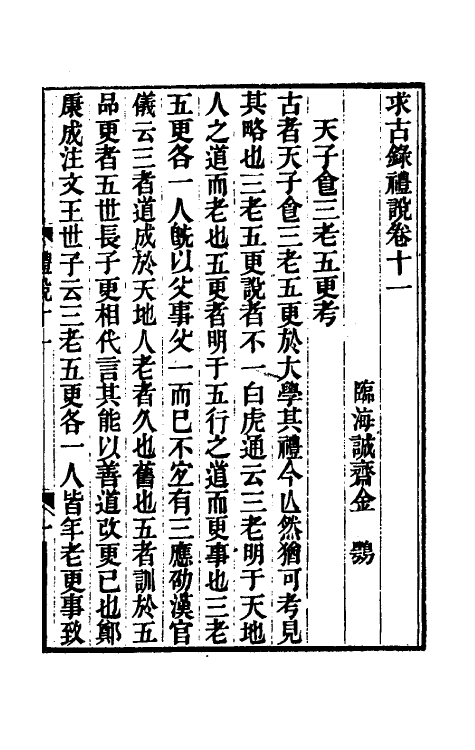 求古錄禮說卷十一
臨海誠齋金鶚
天子食三老五更考
古者天子食三老五更於大學其禮今亾然猶可考見
其略也三老五更說者不一白虎通云三老明于天地
人之道而老也五更者明于五行之道而更事也三老
五更各一人旣以父事父一而巳不宐有三應劭漢官
儀云三者道成於天地人老者久也舊也五者訓於五
品更者五世長子更相代言其能以善道改更已也鄭
康成注文王世子云三老五更各一人皆年老更事致
禮說十一
一